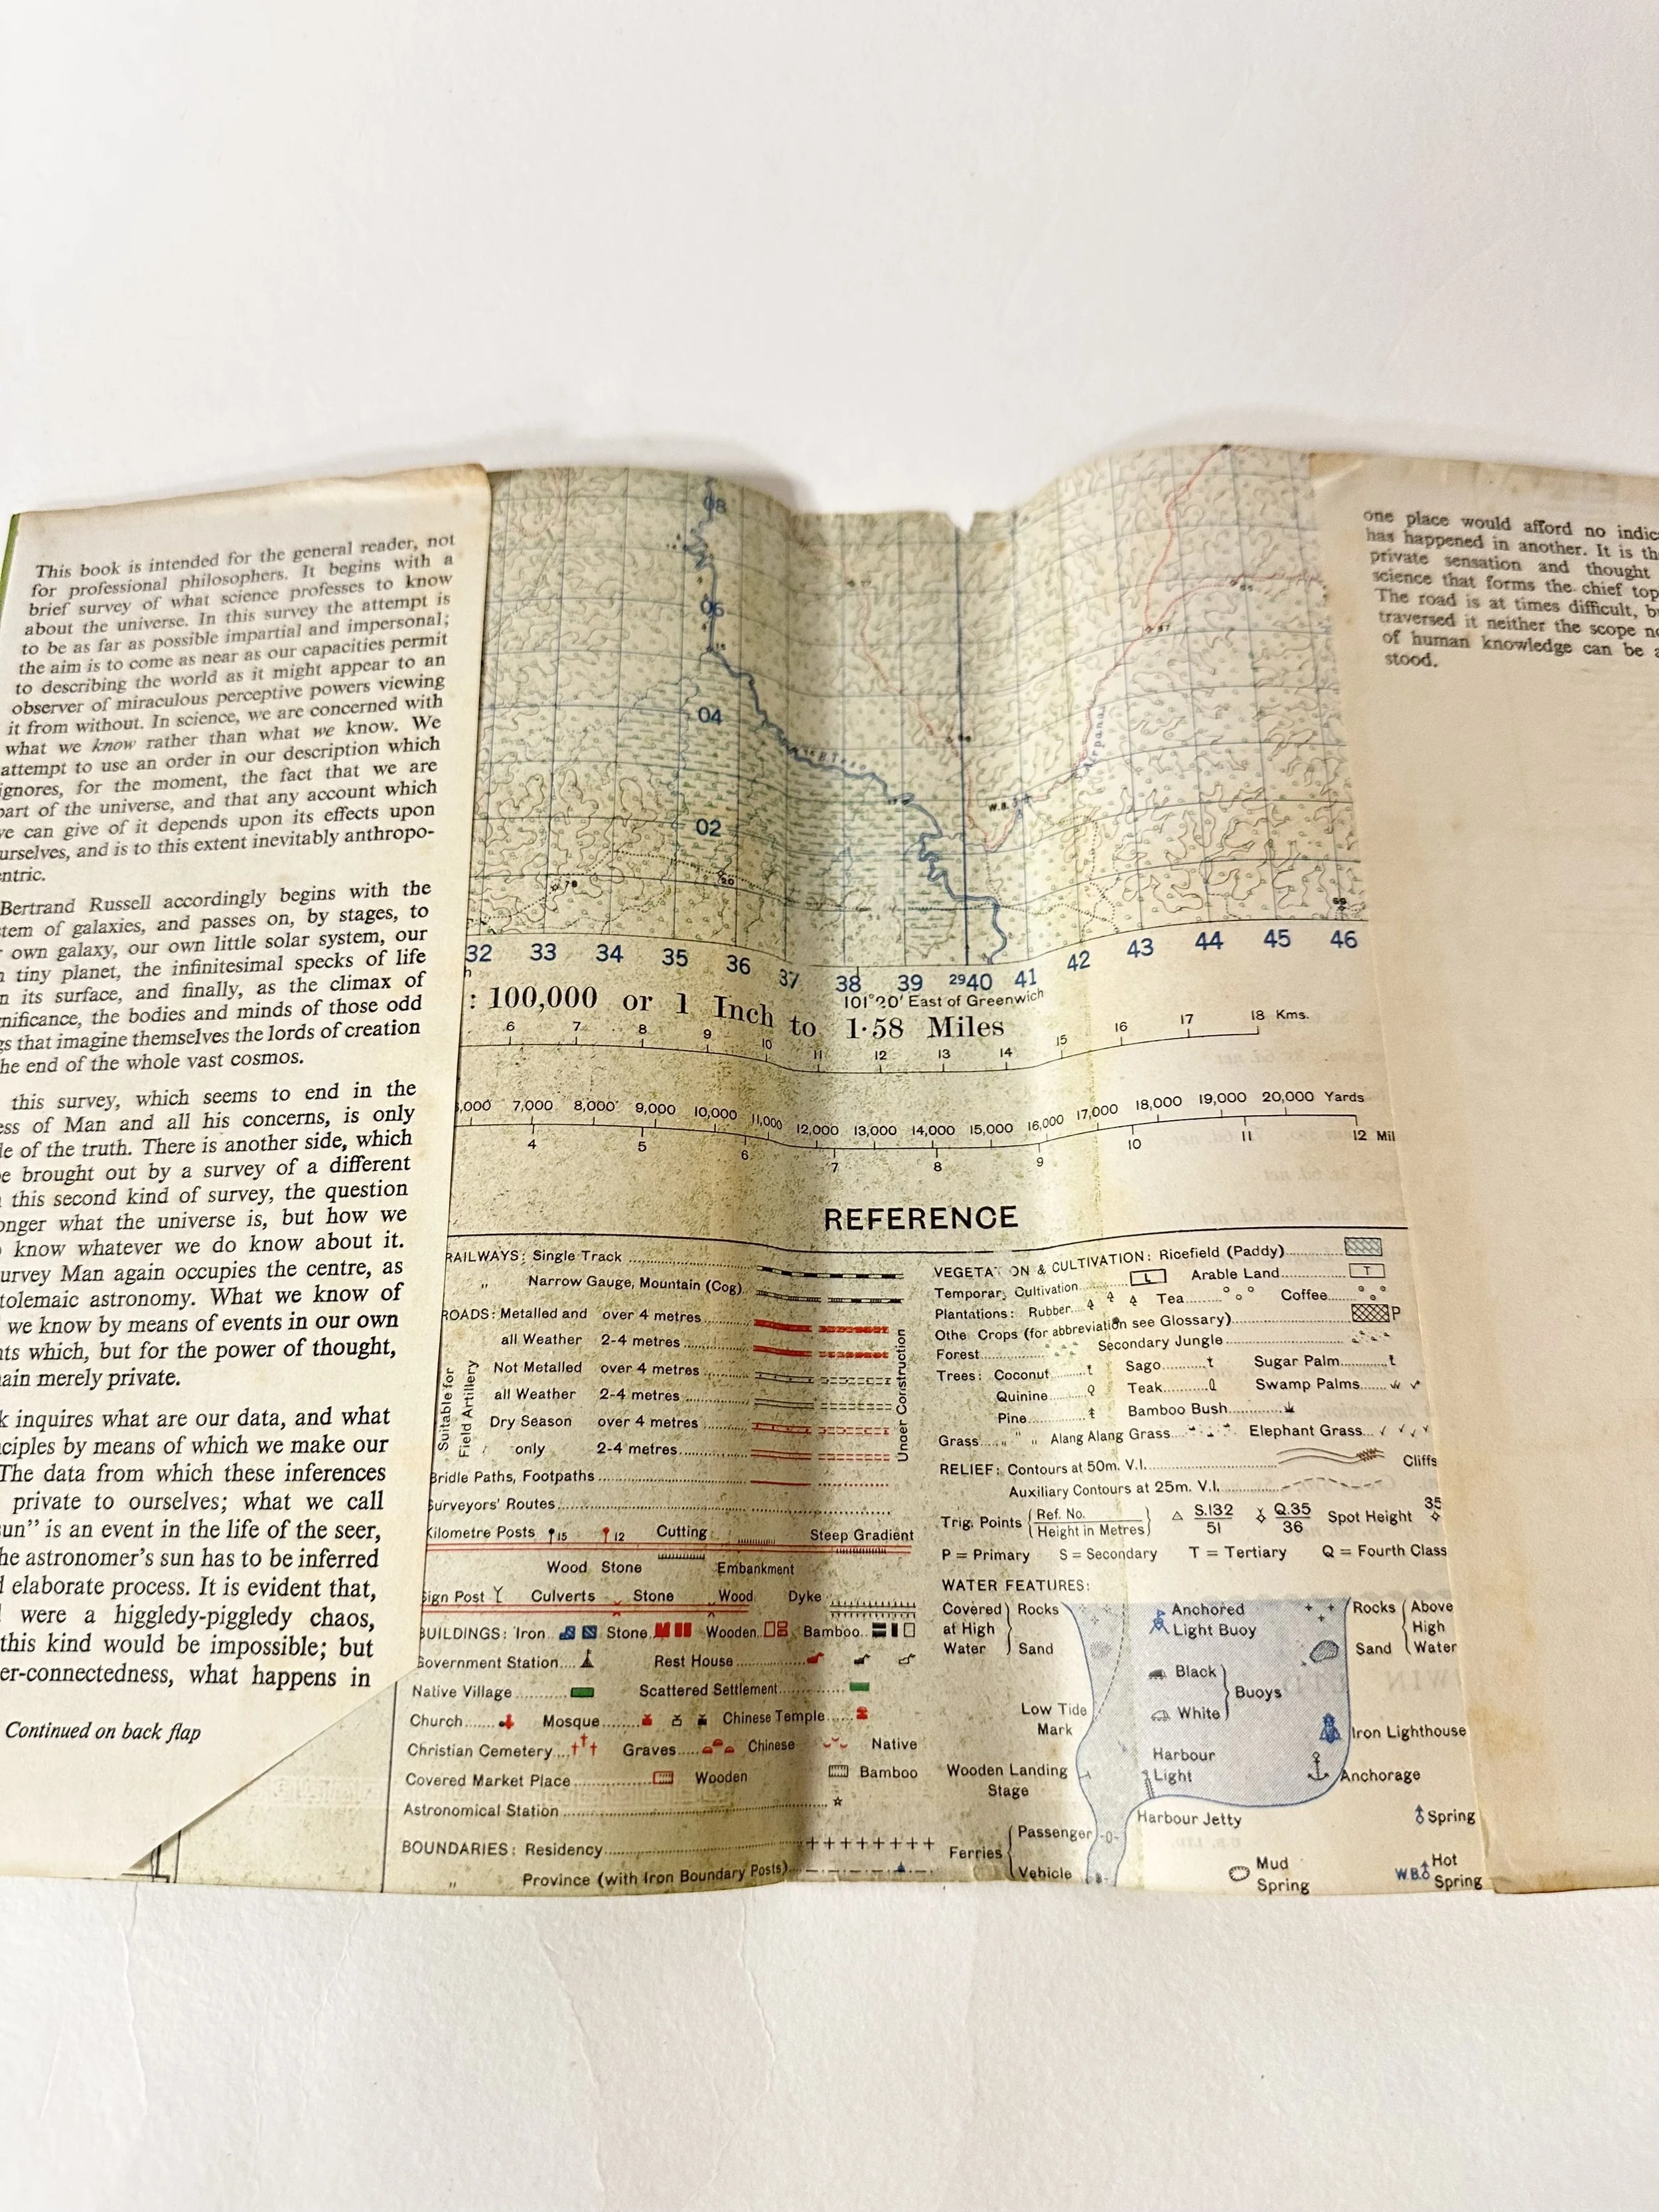 This book is intended for the general reader, not
for professional philosophers. It begins with a
brief survey of what science professes to know
about the universe. In this survey the attempt is
to be as far as possible impartial and impersonal;
the aim is to come as near as our capacities permit
to describing the world as it might appear to an
observer of miraculous perceptive powers viewing
it from without. In science, we are concerned with
what we know rather than what we know. We
attempt to use an order in our description which
ignores, for the moment, the fact that we are
part of the universe, and that any account which
we can give of it depends upon its effects upon
urselves, and is to this extent inevitably anthropo-
entric.
Bertrand Russell accordingly begins with the
tem of galaxies, and passes on, by stages, to
r own galaxy, our own little solar system, our
n tiny planet, the infinitesimal specks of life
n its surface, and finally, as the climax of
gnificance, the bodies and minds of those odd
gs that imagine themselves the lords of creation
he end of the whole vast cosmos.
this survey, which seems to end in the
ess of Man and all his concerns, is only
le of the truth. There is another side, which
e brought out by a survey of a different
n this second kind of survey, the question
onger what the universe is, but how we
o know whatever we do know about it.
urvey Man again occupies the centre, as
tolemaic astronomy. What we know of
we know by means of events in our own
nts which, but for the power of thought,
ain merely private.
k inquires what are our data, and what
ciples by means of which we make our
The data from which these inferences
private to ourselves; what we call
un" is an event in the life of the seer,
he astronomer's sun has to be inferred
d elaborate process. It is evident that,
were a higgledy-piggledy chaos,
this kind would be impossible; but
er-connectedness, what happens in
Continued on back flap
08
06
04
02
78
W.B.
32 33 34 35 36 37 38 39 2940 41 42 43 44 45 46
101°20' East of Greenwich
: 100,000 or 1 Inch to 1·58 Miles
6 7 8 9 10 11 12 13 14 15 16 17 18 Kms.
,000 7,000 8,000 9,000 10,000 11,000 12,000 13,000 14,000 15,000 16,000 17,000 18,000 19,000 20,000 Yards
4 5 6 7 8 9 10 11 12 Mil
REFERENCE
RAILWAYS: Single Track
" Narrow Gauge, Mountain (Cog)
ROADS: Metalled and over 4 metres
all Weather 2-4 metres
Not Metalled over 4 metres
all Weather 2-4 metres
Dry Season over 4 metres
only 2-4 metres
Suitable for
Field Artillery
Under Construction
Bridle Paths, Footpaths
Surveyors' Routes
Kilometre Posts 15 12 Cutting Steep Gradient
Wood Stone Embankment
Sign Post Culverts Stone Wood Dyke
BUILDINGS: Iron Stone Wooden Bamboo
Government Station Rest House
Native Village Scattered Settlement
Church Mosque Chinese Temple
Christian Cemetery Graves Chinese Native
Covered Market Place Wooden Bamboo
Astronomical Station
BOUNDARIES: Residency
" Province (with Iron Boundary Posts)
VEGETA ON & CULTIVATION: Ricefield (Paddy)
Temporary Cultivation L Arable Land T
Plantations: Rubber Tea Coffee
Othe Crops (for abbreviation see Glossary) P
Forest Secondary Jungle
Trees: Coconut Sago Sugar Palm
Quinine Teak Swamp Palms
Pine Bamboo Bush
Grass Alang Alang Grass Elephant Grass
RELIEF: Contours at 50m. V.I. Cliffs
Auxiliary Contours at 25m. V.I.
Trig. Points Ref. No. Height in Metres S.132 51 Q.35 36 Spot Height 35
P = Primary S = Secondary T = Tertiary Q = Fourth Class
WATER FEATURES:
Covered at High Water Rocks Sand
Anchored Light Buoy
Rocks Sand Above High Water
Black White Buoys
Low Tide Mark
Iron Lighthouse
Harbour Light
Wooden Landing Stage
Anchorage
Harbour Jetty
Spring
Ferries Passenger Vehicle
Mud Spring
W.B. Hot Spring
one place would afford no indic
has happened in another. It is th
private sensation and thought
science that forms the chief top
The road is at times difficult, b
traversed it neither the scope n
of human knowledge can be a
stood.